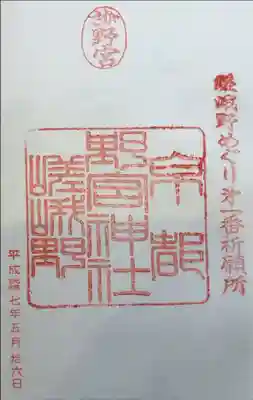 野宮
嵯峨野めぐり第一番祈願所
京都
野宮神社
嵯峨野
平成 七年五月拾六日